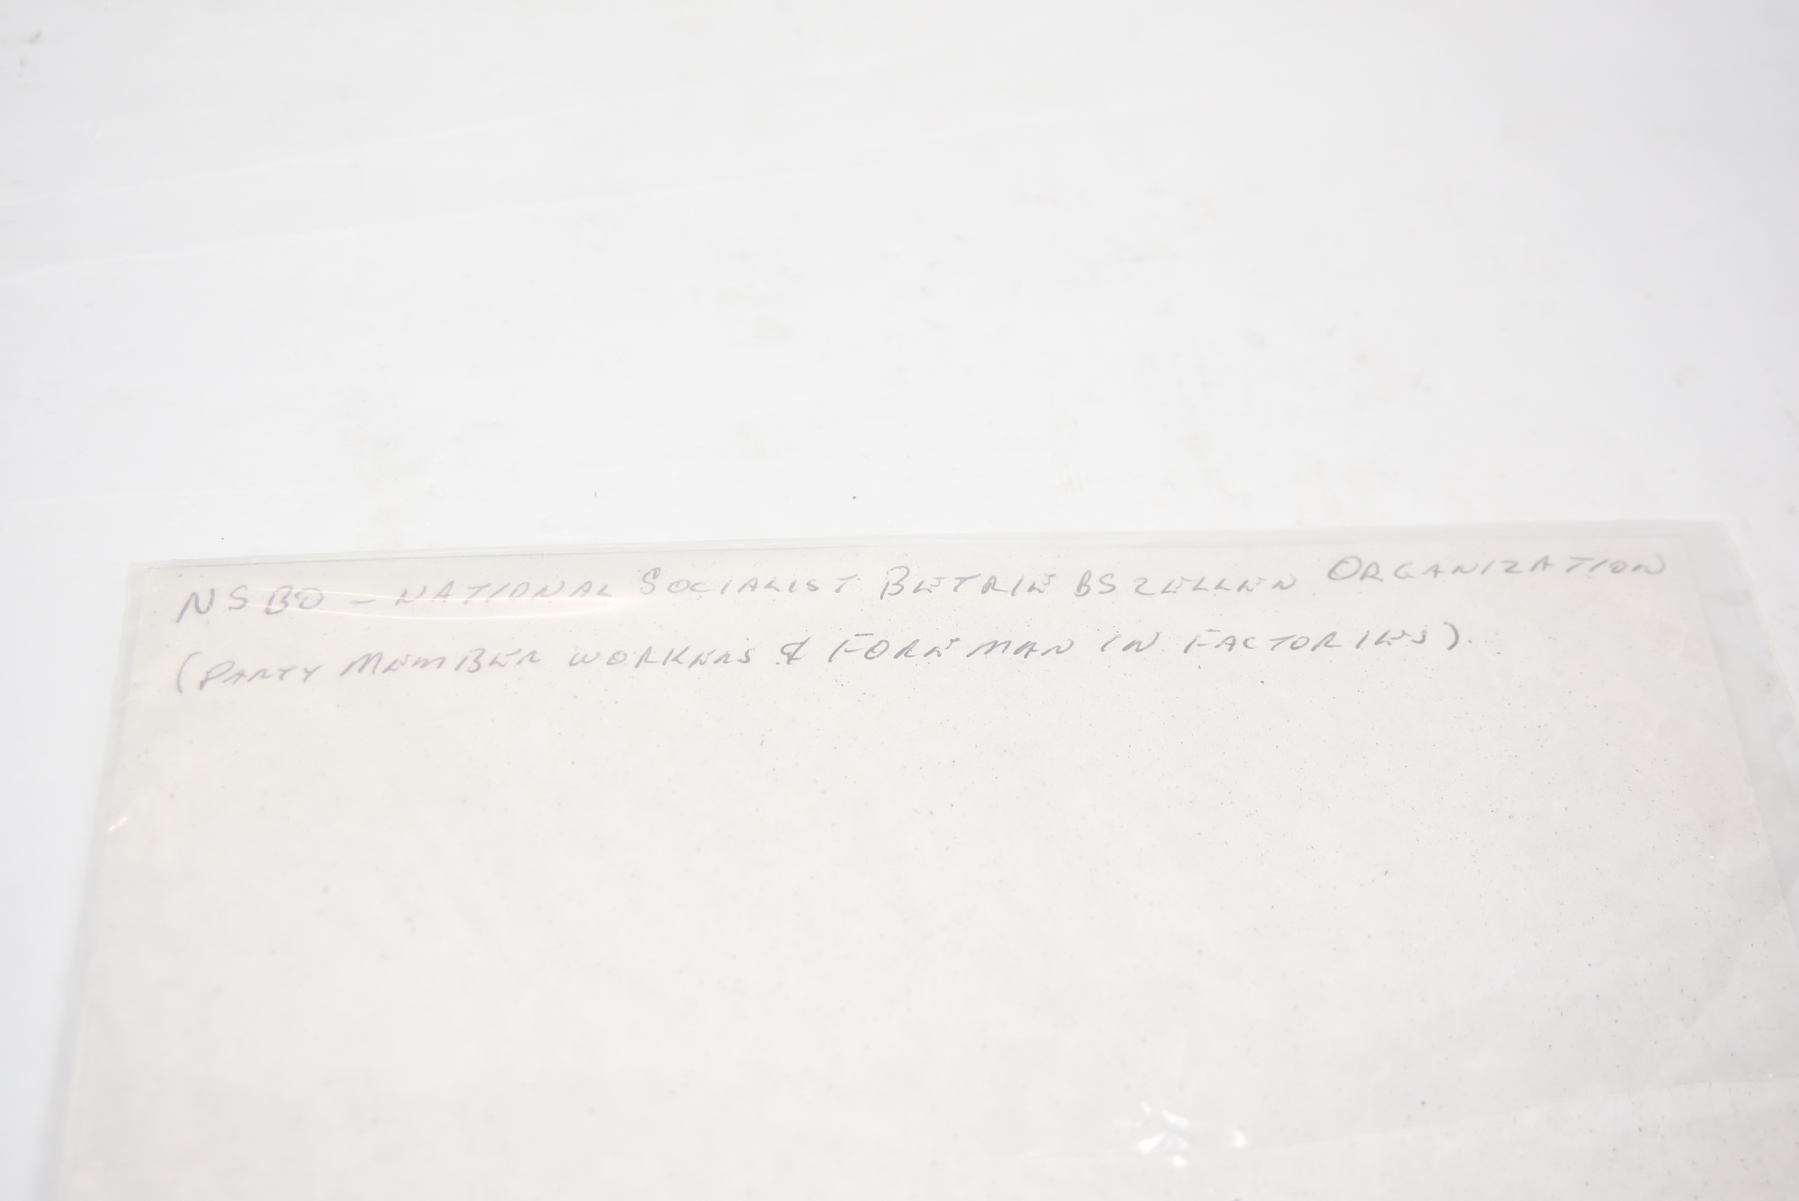 NSBO - NATIONAL SOCIALIST BETRIEBSZELLEN ORGANIZATION
(PARTY MEMBER WORKERS & FOREMAN IN FACTORIES).